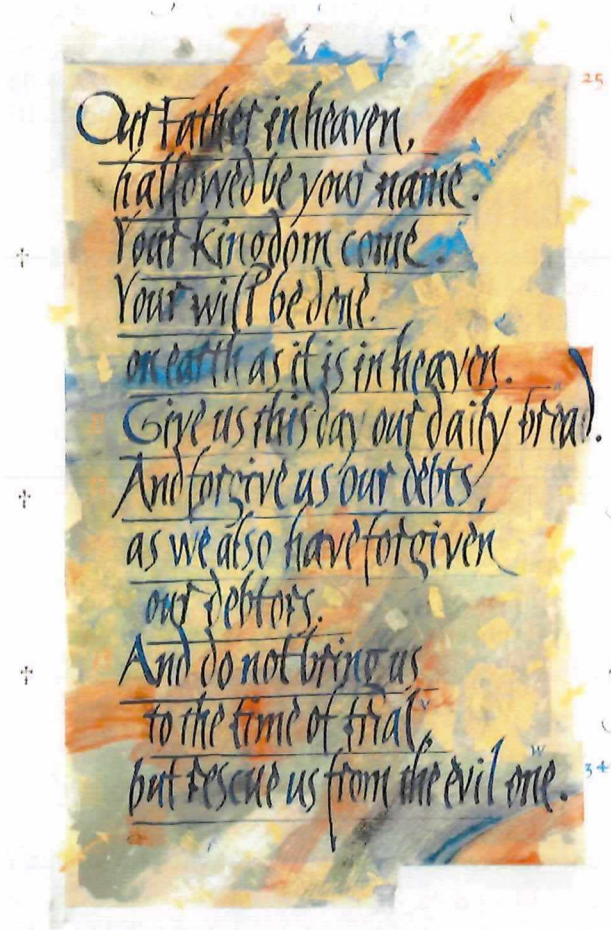 25
Our Father in heaven,
hallowed be your name.
Your kingdom come.
Your will be done.
on earth as it is in heaven.
u
Give us this day our daily bread.
And forgive us our debts,
as we also have forgiven
our debtors.
And do not bring us
v
to the time of trial,
w
34
but rescue us from the evil one.